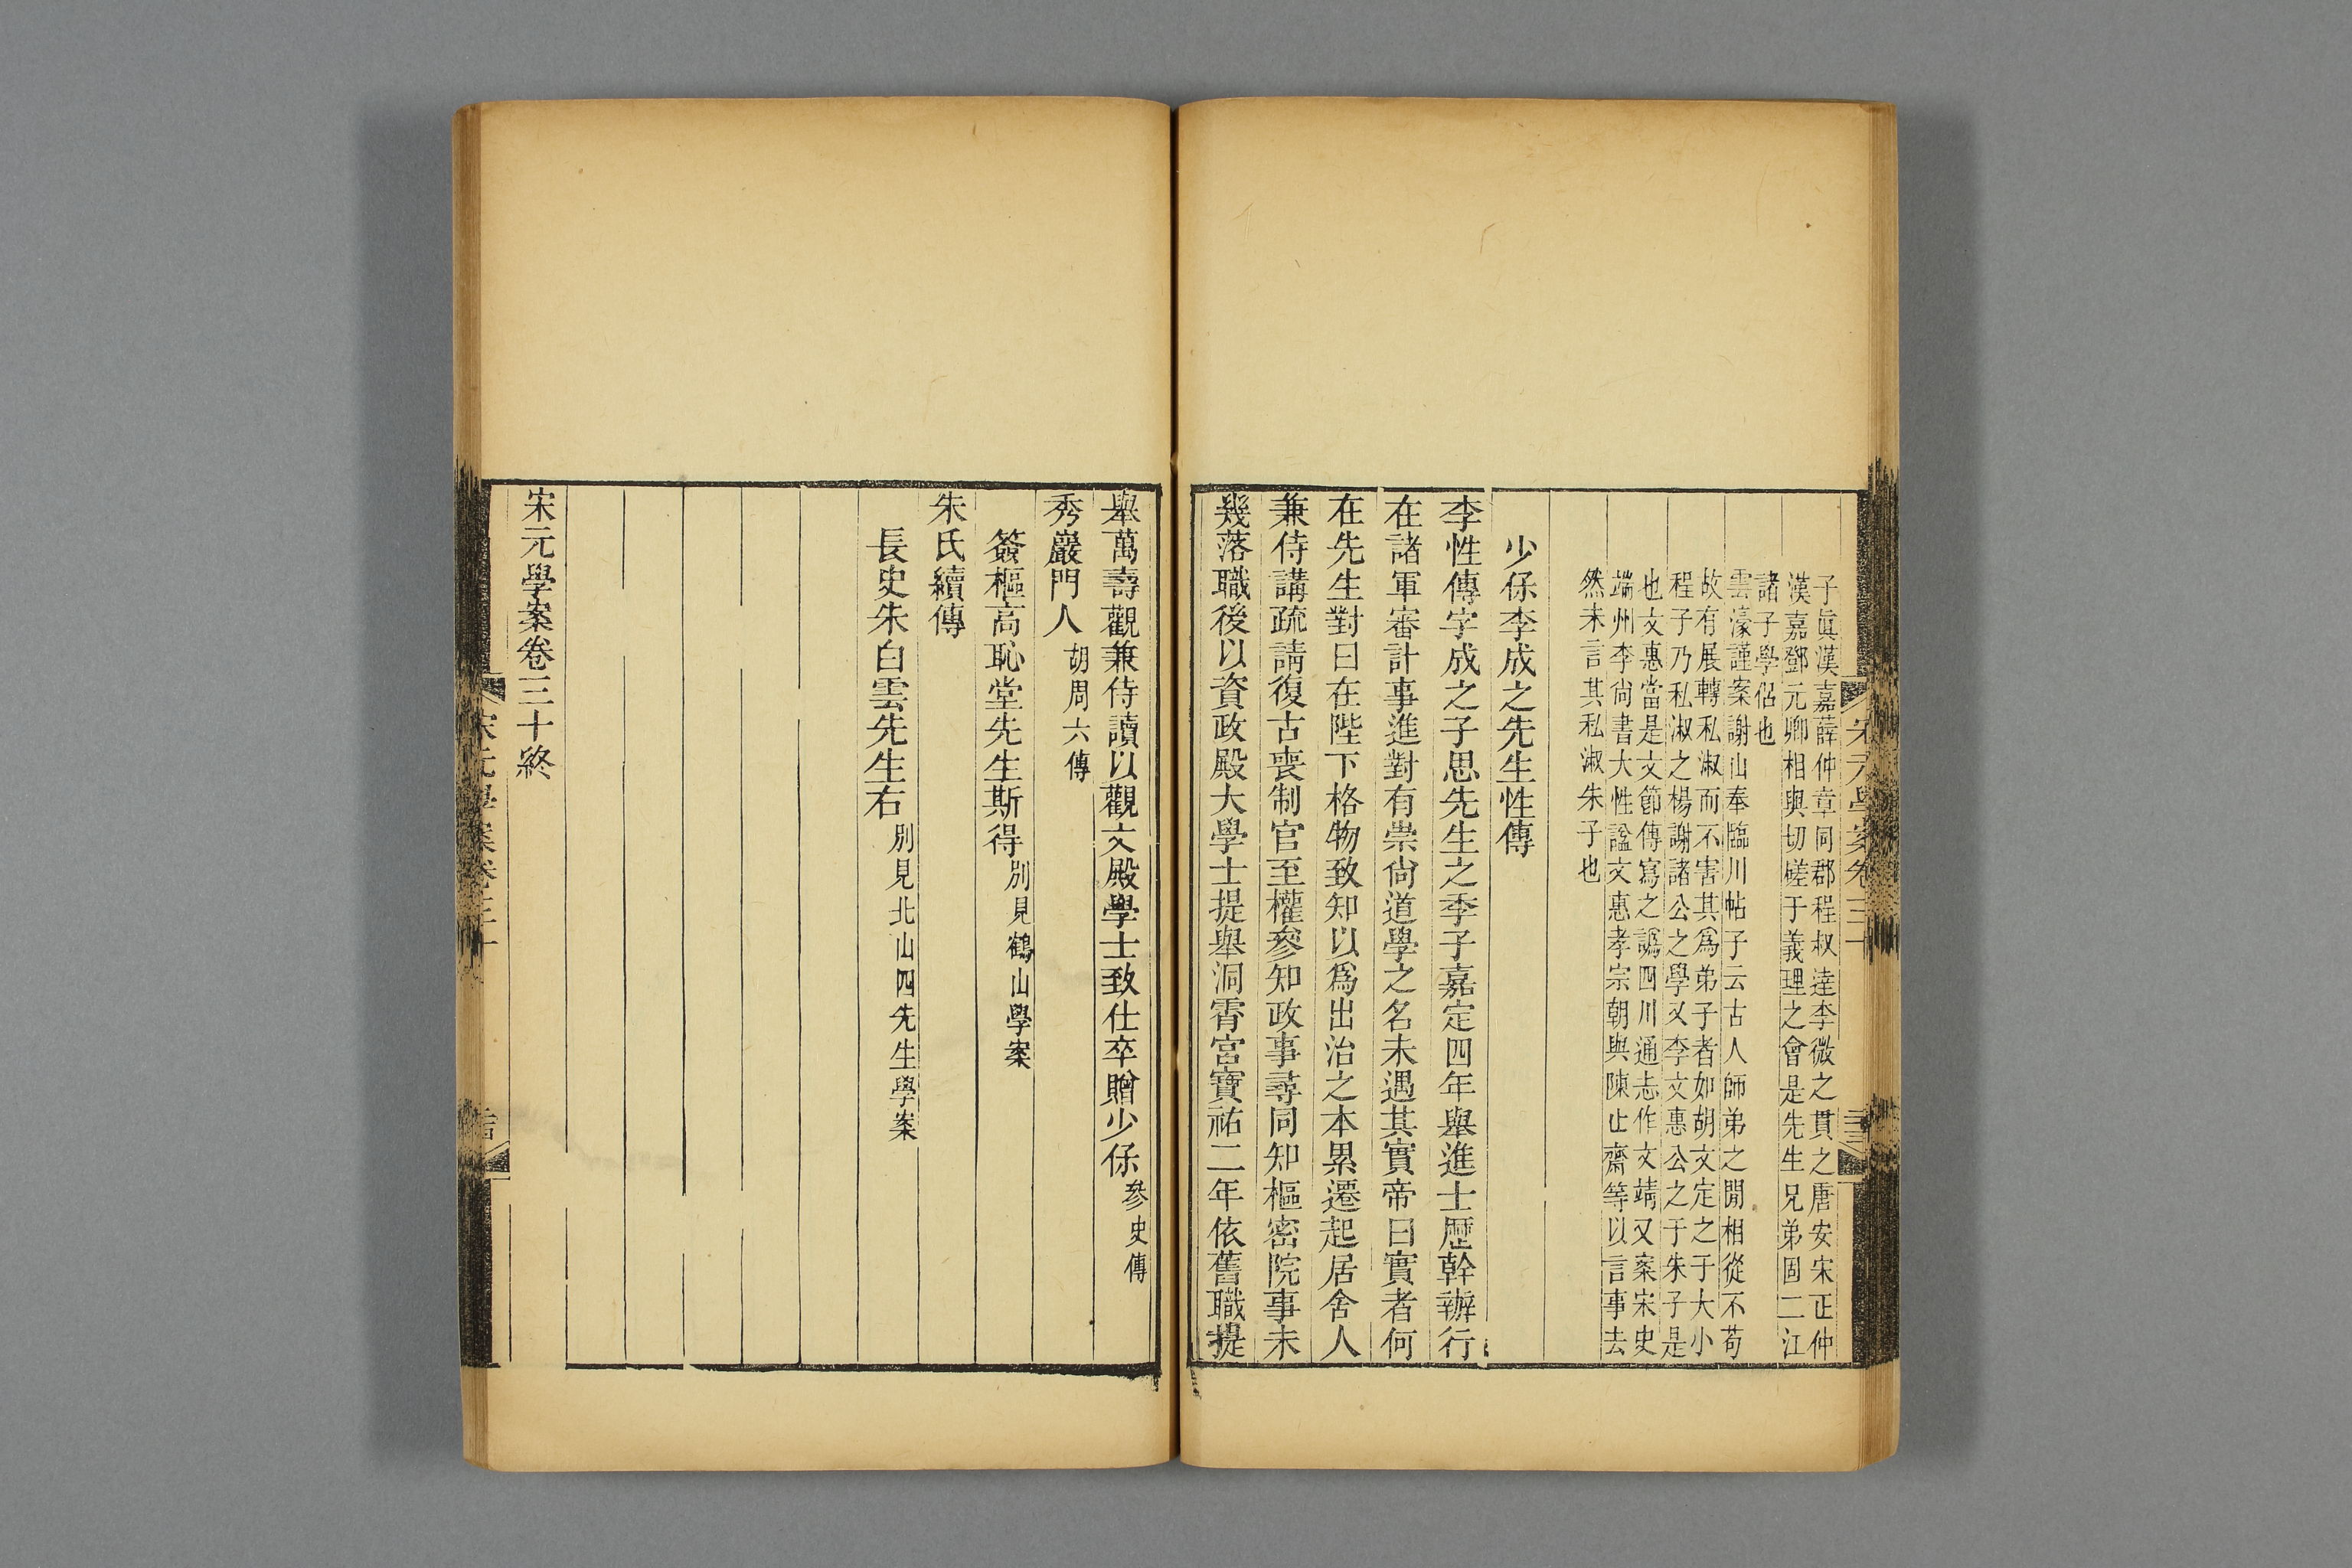 子眞漢嘉薛仲章同郡程叔達李微之貫之唐安宋正仲
漢嘉鄧元卿相與切磋于義理之會是先生兄弟固二江
諸子學侶也
雲濠謹案謝山奉臨川帖子云古人師弟之閒相從不苟
故有展轉私淑而不害其爲弟子者如胡文定之于大小
程子乃私淑之楊謝諸公之學又李文惠公之于朱子是
也文惠當是文節傳寫之譌四川通志作文靖又案宋史
端州李尙書大性諡文惠孝宗朝與陳止齋等以言事去
然未言其私淑朱子也
少保李成之先生性傳
李性傳字成之子思先生之季子嘉定四年舉進士歷幹辦行
在諸軍審計事進對有崇尙道學之名未遇其實帝曰實者何
在先生對曰在陛下格物致知以爲出治之本累遷起居舍人
兼侍講疏請復古喪制官至權參知政事尋同知樞密院事未
幾落職後以資政殿大學士提舉洞霄宮寶祐二年依舊職提
宋元學案卷三十
舉萬壽觀兼侍讀以觀文殿學士致仕卒贈少保參史傳
秀巖門人胡周六傳
簽樞高恥堂先生斯得別見鶴山學案
朱氏續傳
長史朱白雲先生右別見北山四先生學案
宋元學案卷三十終
宋元學案卷三十